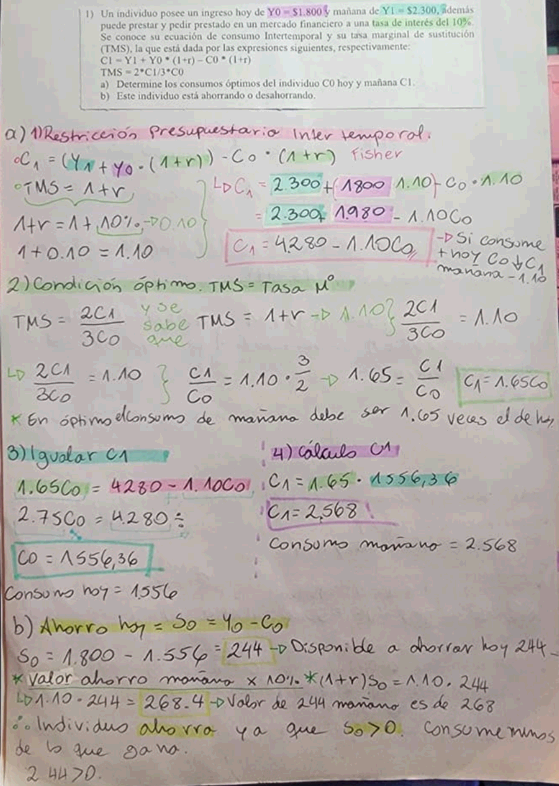 1) Un individuo posee un ingreso hoy de Y0 = $1.800 y mañana de Y1 = $2.300, además
puede prestar y pedir prestado en un mercado financiero a una tasa de interés del 10%.
Se conoce su ecuación de consumo Intertemporal y su tasa marginal de sustitución
(TMS), la que está dada por las expresiones siguientes, respectivamente:
C1 = Y1 + Y0 * (1+r) – C0 * (1+r)
TMS = 2*C1/3*C0
a) Determine los consumos óptimos del individuo C0 hoy y mañana C1.
b) Este individuo está ahorrando o desahorrando.
a) 1) Restricción Presupuestaria Inter temporal.
C1 = (Y1 + Y0 · (1+r)) - C0 · (1+r) Fisher
TMS = 1+r
1+r = 1 + 10% → 0.10
1 + 0.10 = 1.10
↳ C1 = 2300 + (1800 · 1.10) - C0 · 1.10
= 2.300 + 1980 - 1.10C0
C1 = 4280 - 1.10C0
→ Si consume
+ hoy C0 ↓ C1
mañana - 1.10
2) Condición óptimo. TMS = Tasa Mº
TMS = 2C1/3C0 y se sabe que TMS = 1+r → 1.10 } 2C1/3C0 = 1.10
↳ 2C1/3C0 = 1.10 } C1/C0 = 1.10 · 3/2 → 1.65 = C1/C0 C1 = 1.65C0
* En óptimo el consumo de mañana debe ser 1.65 veces el de hoy
3) Igualar C1
1.65C0 = 4280 - 1.10C0
2.75C0 = 4.280 ÷
C0 = 1556,36
Consumo hoy = 1556
4) Cálculo C1
C1 = 1.65 · 1556,36
C1 = 2,568
Consumo mañana = 2.568
b) Ahorro hoy = S0 = Y0 - C0
S0 = 1.800 - 1.556 = 244 → Disponible a ahorrar hoy 244
* valor ahorro mañana x 10% * (1+r)S0 = 1.10 · 244
↳ 1.10 · 244 = 268.4 → Valor de 244 mañana es de 268
∴ Individuo ahorra ya que S0 > 0. Consume menos
de lo que gana.
244 > 0.